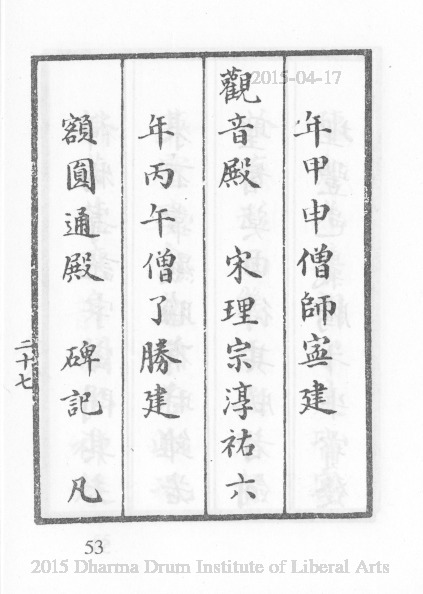 2015-04-17
年甲申僧師寍建
觀音殿 宋理宗淳祐六
年丙午僧了勝建
額圓通殿 碑記 凡
二十七
53
2015 Dharma Drum Institute of Liberal Arts